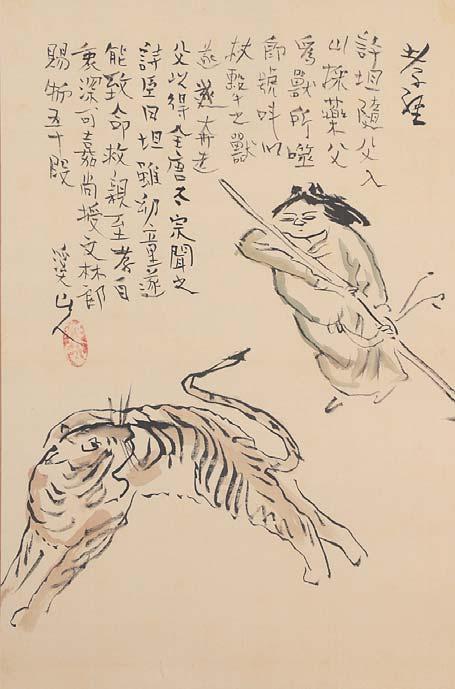 孝経
許坦隨父入
山採藥父
為獸所噬
即號叫以
杖擊之獸
遂奔走
父以得全唐太宗聞之
詩臣曰坦雖幼童遂
能致命救親至孝自
衷深可嘉尚授文林郎
賜物五十段
山人